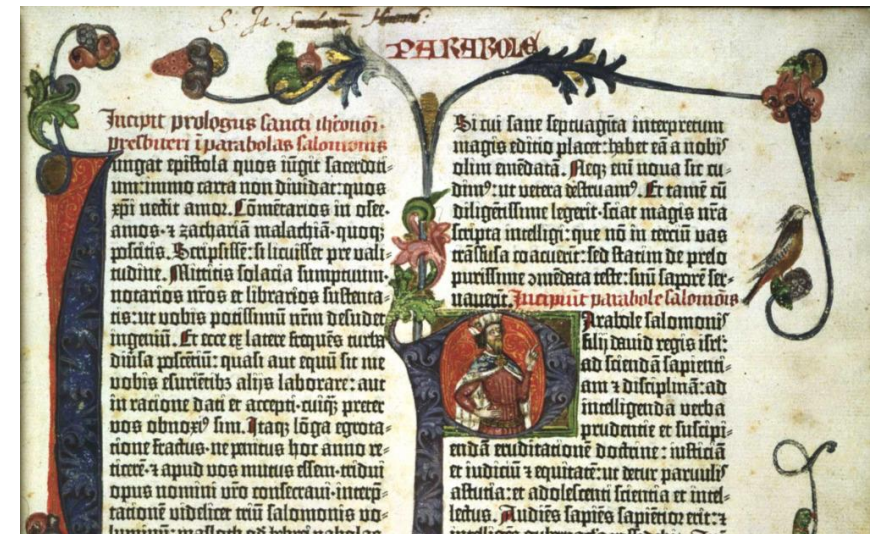 PARABOLE
Incipit prologus sancti iheronimi
presbiteri ī parabolas salomonis
Iungat epistola quos iūgit sacerdoti-
um: immo carta non dividat: quos
xp̄i nectit amor. Cōmētarios in osee.
amos. ⁊ zachariā malachiā. quoqȝ
poscitis. Scripsissē: si licuisset pre vali-
tudine. Mittitis solacia sumptuum.
notarios nr̄os et librarios sustenta-
tis: ut vobis potissimū nr̄m desudet
ingeniū. Et ecce ex latere frequēs turba
diūsa poscētiū: quasi aut equū sit me
vobis esurietibȝ alijs laborare: aut
in racione dati et accepti. cuiqȝ preter
vos obnoxiꝰ sim. Itaqȝ lōga egrota-
cione fractus. ne penitus hoc anno re-
ticerē. ⁊ apud vos mutus essem. tridui
opus nomini vr̄o consecravi. interp̄-
tacionē videlicet triū salomonis vo-
luminū: masloth qd̄ hebrei parabolas
Si cui sane septuagīta interpretum
magis editio placet: habet eā a nobis
olim emēdatā. Neqȝ enī nova sic cu-
dimꝰ: ut vetera destruamꝰ. Et tamē cū
diligētissime legerit. sciat magis nr̄a
scripta intelligi: que nō in terciū vas
trāsfusa coacuerit: sed statim de prelo
purissime ɔmēdata teste: suū saporē ser-
vaverit. Incipiūt parabole salomōis
Parabole salomonis
filij david regis isrl̄:
ad sciendā sapienti-
am ⁊ disciplinā: ad
intelligendā verba
prudentie et suscipi-
endā eruditacionē doctrine: iusticiā
et iudiciū ⁊ equitatē: ut detur parvulis
astutia: et adolescenti scientia et intel-
lectus. Audiēs sapiēs sapiētior erit: ⁊